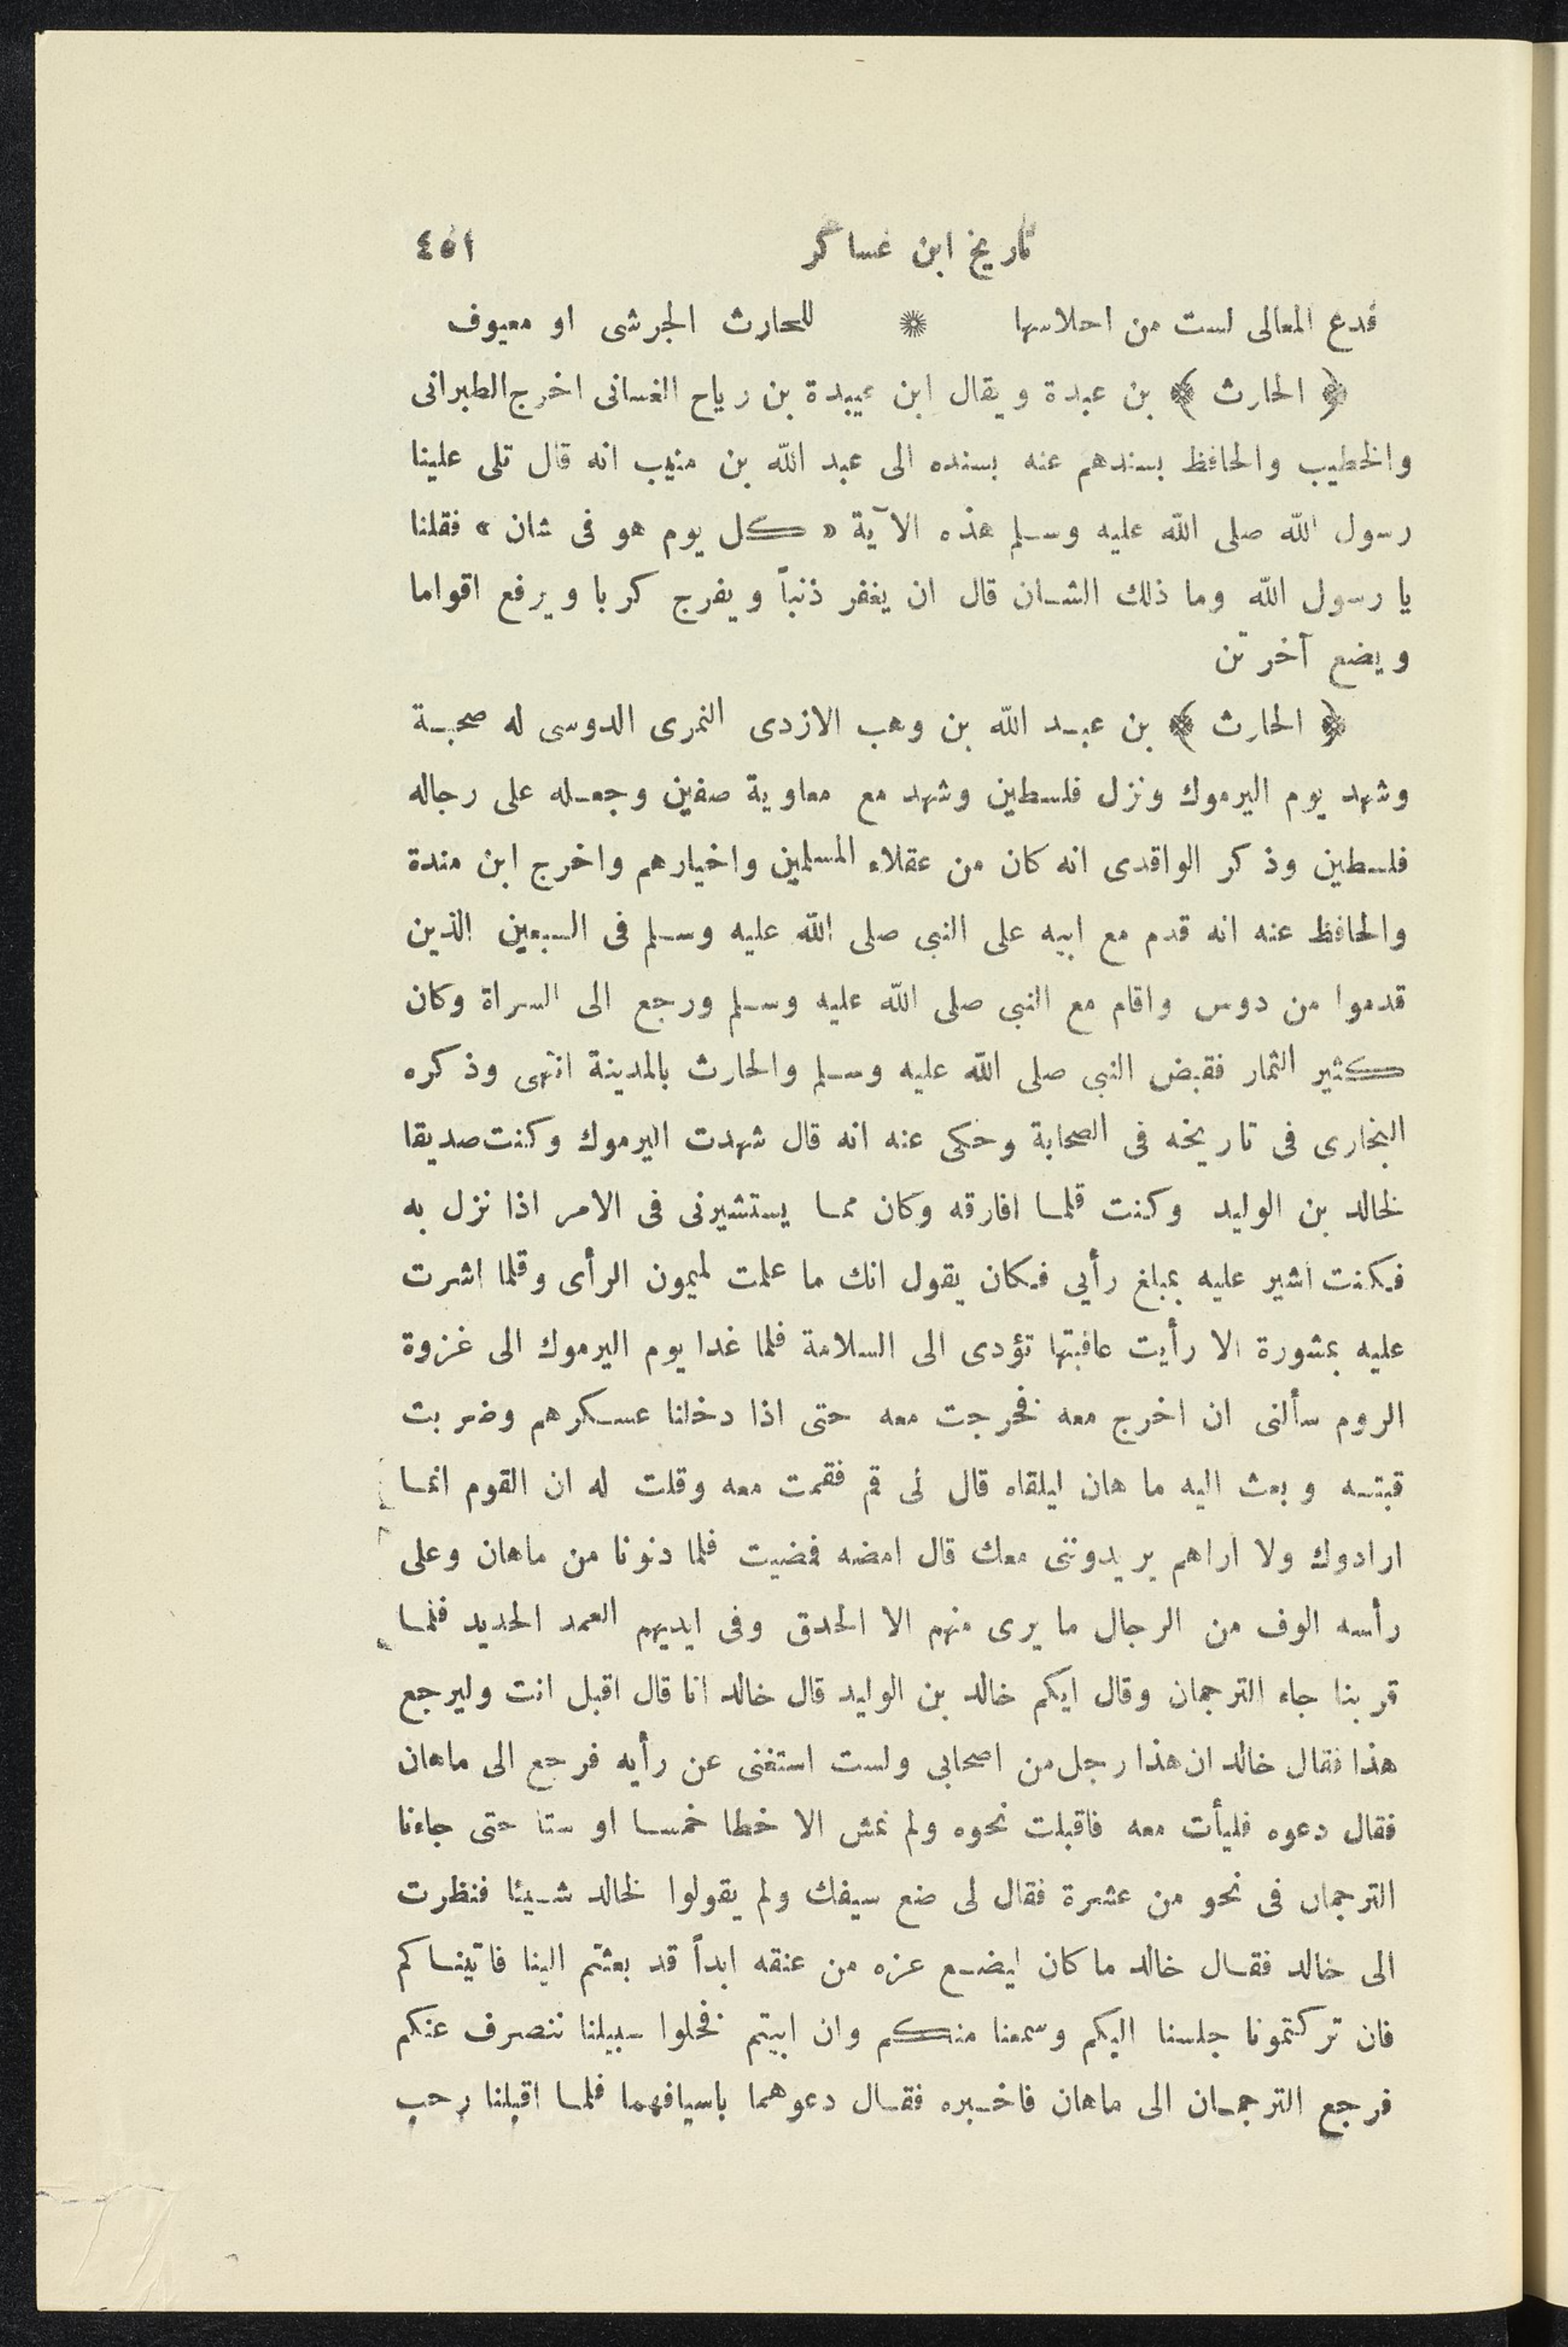 تاريخ ابن عساكر ٤٥١
فدع المعالى لست من احلاسها * للحارث الجرشى او معيوف
﴿ الحارث ﴾ بن عبدة ويقال ابن عبيدة بن رياح الغسانى اخرج الطبرانى
والخطيب والحافظ بسندهم عنه بسنده الى عبد الله بن منيب انه قال تلى علينا
رسول الله صلى الله عليه وسلم هذه الآية « كل يوم هو فى شان » فقلنا
يا رسول الله وما ذلك الشان قال ان يغفر ذنباً ويفرج كربا ويرفع اقواما
ويضع آخرين
﴿ الحارث ﴾ بن عبد الله بن وهب الازدى النمرى الدوسى له صحبة
وشهد يوم اليرموك ونزل فلسطين وشهد مع معاوية صفين وجعله على رجاله
فلسطين وذكر الواقدى انه كان من عقلاء المسلمين واخيارهم واخرج ابن مندة
والحافظ عنه انه قدم مع ابيه على النبى صلى الله عليه وسلم فى السبعين الذين
قدموا من دوس واقام مع النبى صلى الله عليه وسلم ورجع الى السراة وكان
كثير الثمار فقبض النبى صلى الله عليه وسلم والحارث بالمدينة انتهى وذكره
البخارى فى تاريخه فى الصحابة وحكى عنه انه قال شهدت اليرموك وكنت صديقا
لخالد بن الوليد وكنت قلما افارقه وكان مما يستشيرنى فى الامر اذا نزل به
فكنت اشير عليه بمبلغ رأيى فكان يقول انك ما علمت لميمون الرأى وقلما اشرت
عليه بمشورة الا رأيت عاقبتها تؤدى الى السلامة فلما غدا يوم اليرموك الى غزوة
الروم سألنى ان اخرج معه فخرجت معه حتى اذا دخلنا عسكرهم وضربت
قبته وبعث اليه ما هان ليلقاه قال لى قم فقمت معه وقلت له ان القوم انما
ارادوك ولا اراهم يريدوننى معك قال امضه فمضيت فلما دنونا من ماهان وعلى
رأسه الوف من الرجال ما يرى منهم الا الحدق وفى ايديهم العمد الحديد فلما
قربنا جاء الترجمان وقال ايكم خالد بن الوليد قال خالد انا قال اقبل انت وليرجع
هذا فقال خالد ان هذا رجل من اصحابى ولست استغنى عن رأيه فرجع الى ماهان
فقال دعوه فليأت معه فاقبلت نحوه ولم نمش الا خطا خمسا او ستا حتى جاءنا
الترجمان فى نحو من عشرة فقال لى ضع سيفك ولم يقولوا لخالد شيئا فنظرت
الى خالد فقال خالد ما كان ليضع عزه من عنقه ابداً قد بعثتم الينا فاتيناكم
فان تركتمونا جلسنا اليكم وسمعنا منكم وان ابيتم فخلوا سبيلنا ننصرف عنكم
فرجع الترجمان الى ماهان فاخبره فقال دعوهما باسيافهما فلما اقبلنا رحب